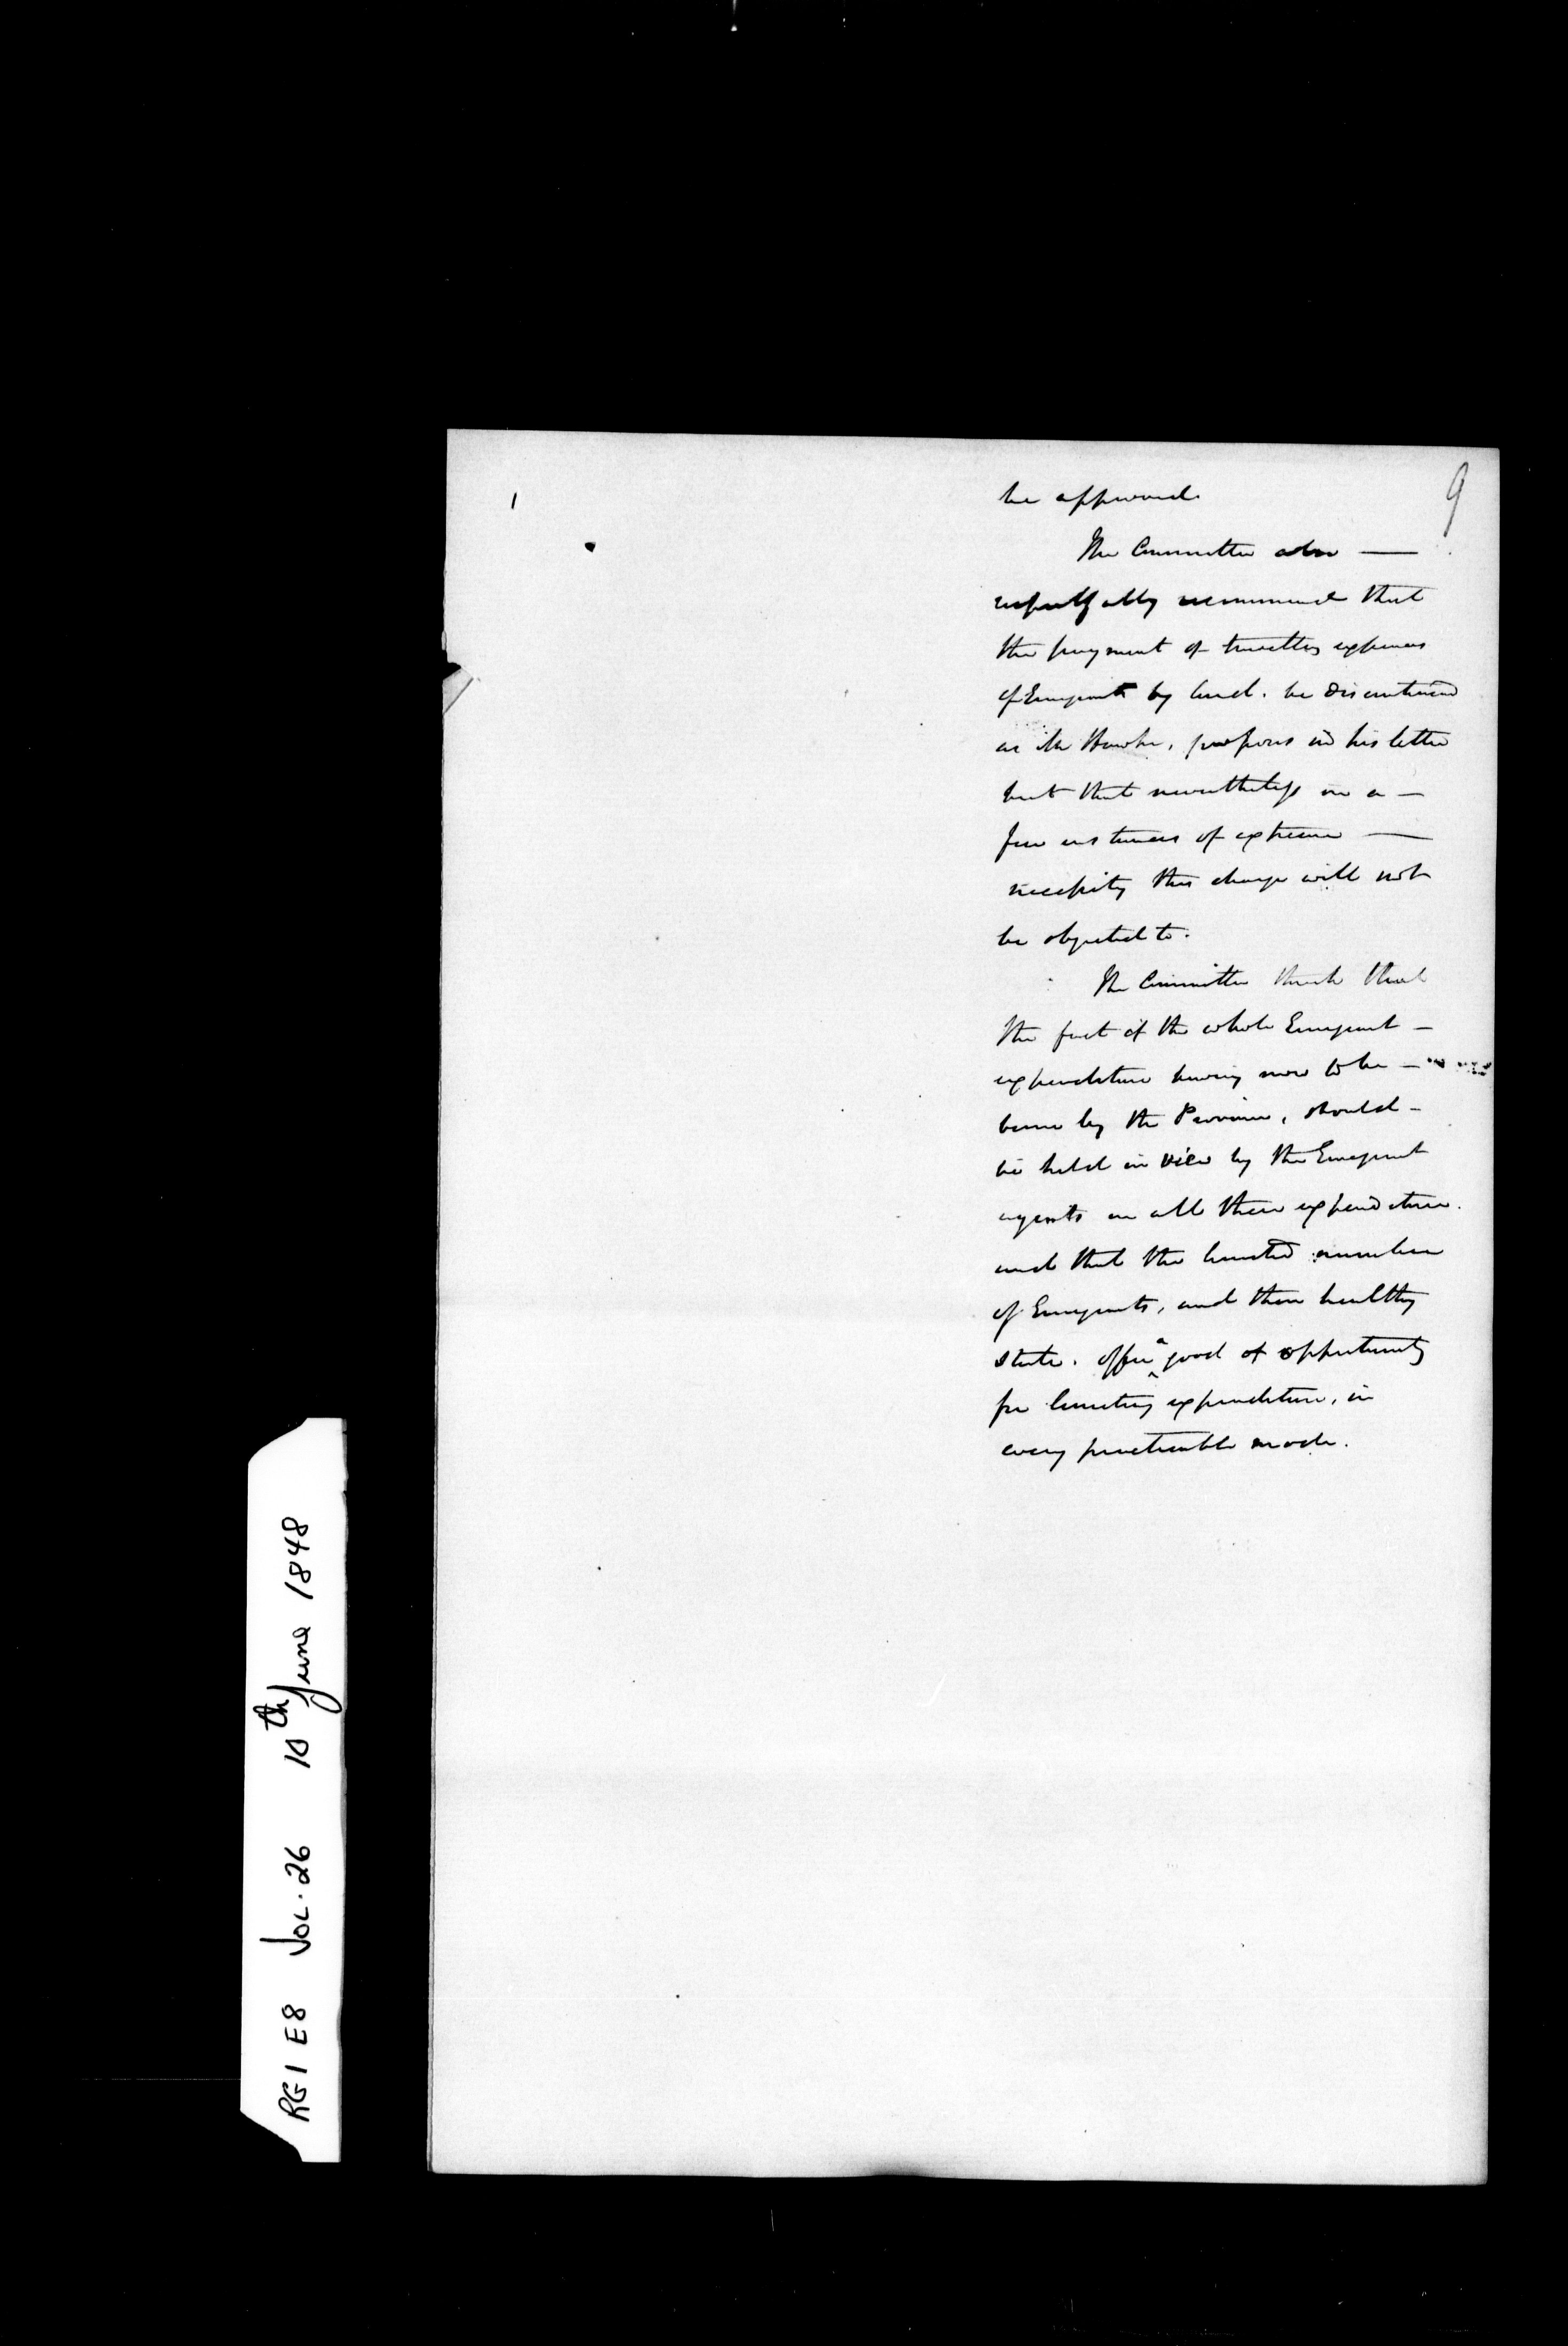 9
be approved.
The Committee also —
respectfully recommend that
the payment of travelling expenses
of Emigrants by land. be discontinued
as Mr Hawke, proposes in his letter
but that nevertheless in a —
few instances of extreme —
necessity this charge will not
be objected to.
The Committee think that
the fact of the whole Emigrant —
expenditure having now to be —
borne by the Province, should —
be held in view by the Emigrant
agents in all their expenditure.
and that the limited number
of Emigrants, and their healthy
state. offer a good opportunity
for limiting expenditure, in
every practicable mode.
RG1 E8 VOL. 26 10th June 1848